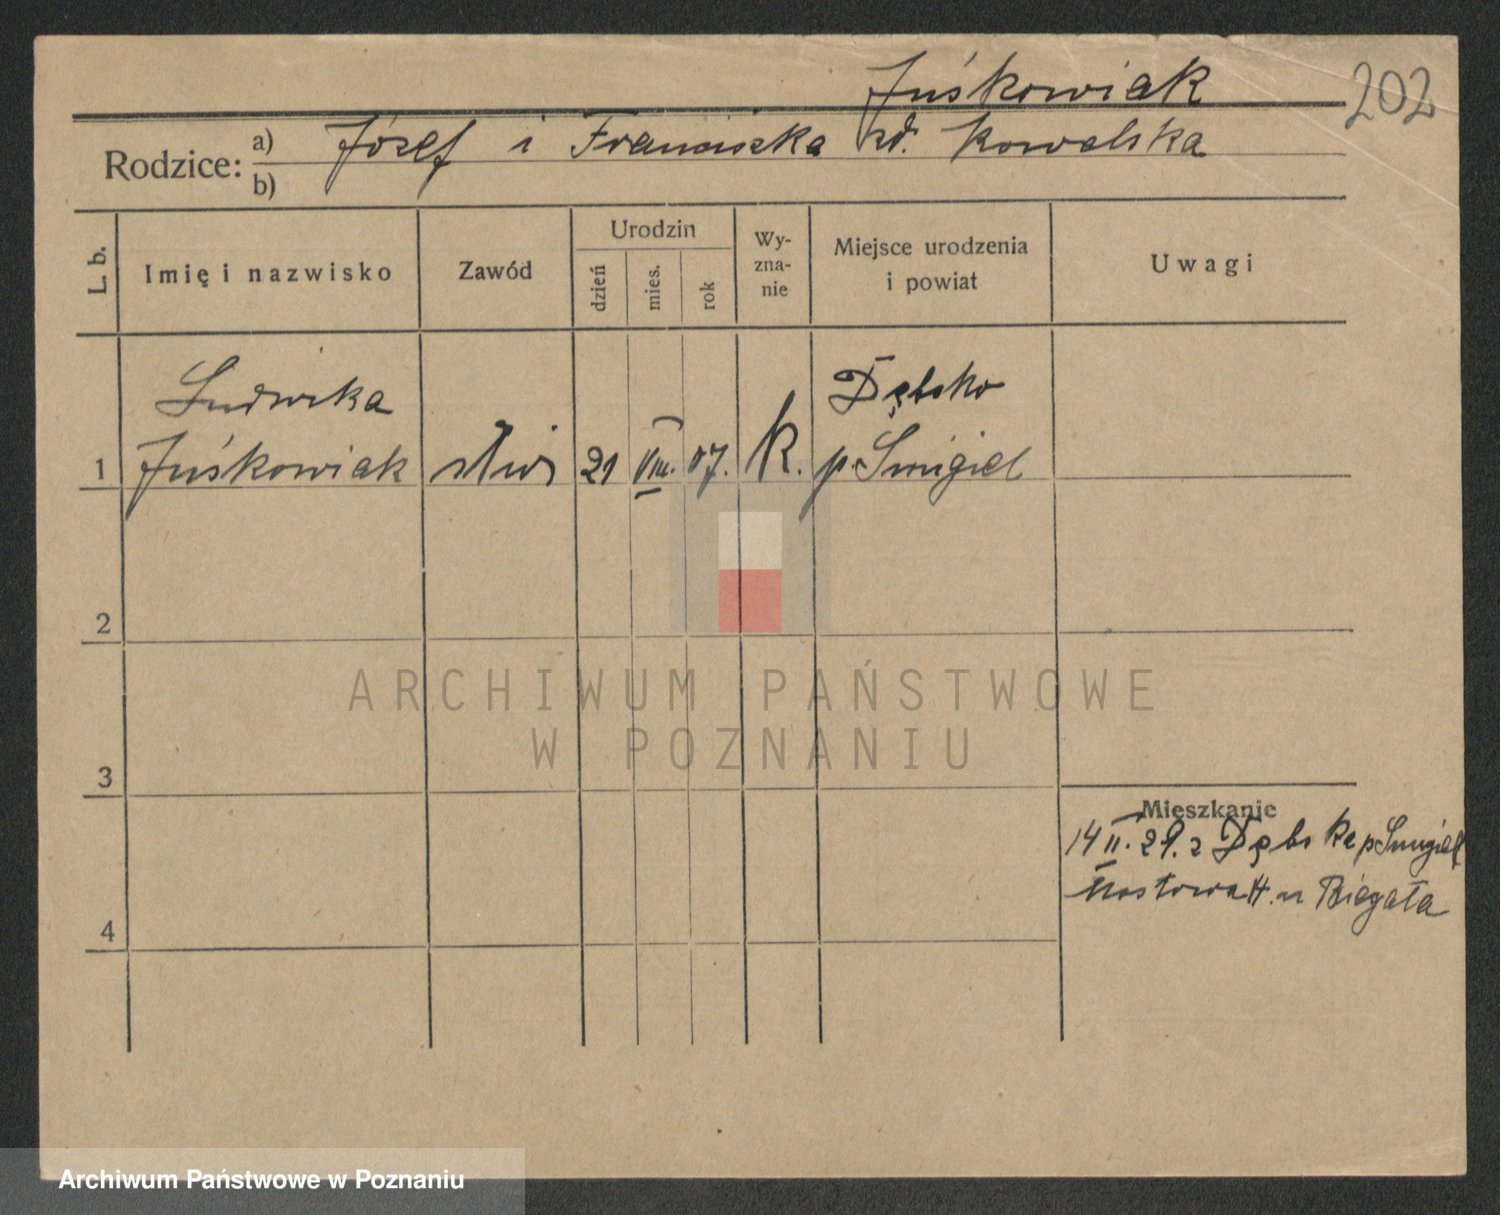 Juśkowiak
202
Rodzice:
a) Józef i Franciszka zd. Kowalska
b)
L. b.
Imię i nazwisko
Zawód
Urodzin
dzień
mies.
rok
Wy-
zna-
nie
Miejsce urodzenia
i powiat
Uwagi
Ludwika
Dębsko
1 Juśkowiak służ 21 VIII. 07. K. p. Śmigiel
2
ARCHIWUM PAŃSTWOWE
W POZNANIU
3
Mieszkanie
14 II. 29. z Dębska p Śmigiel
Mostowa u Biegała
4
Archiwum Państwowe w Poznaniu